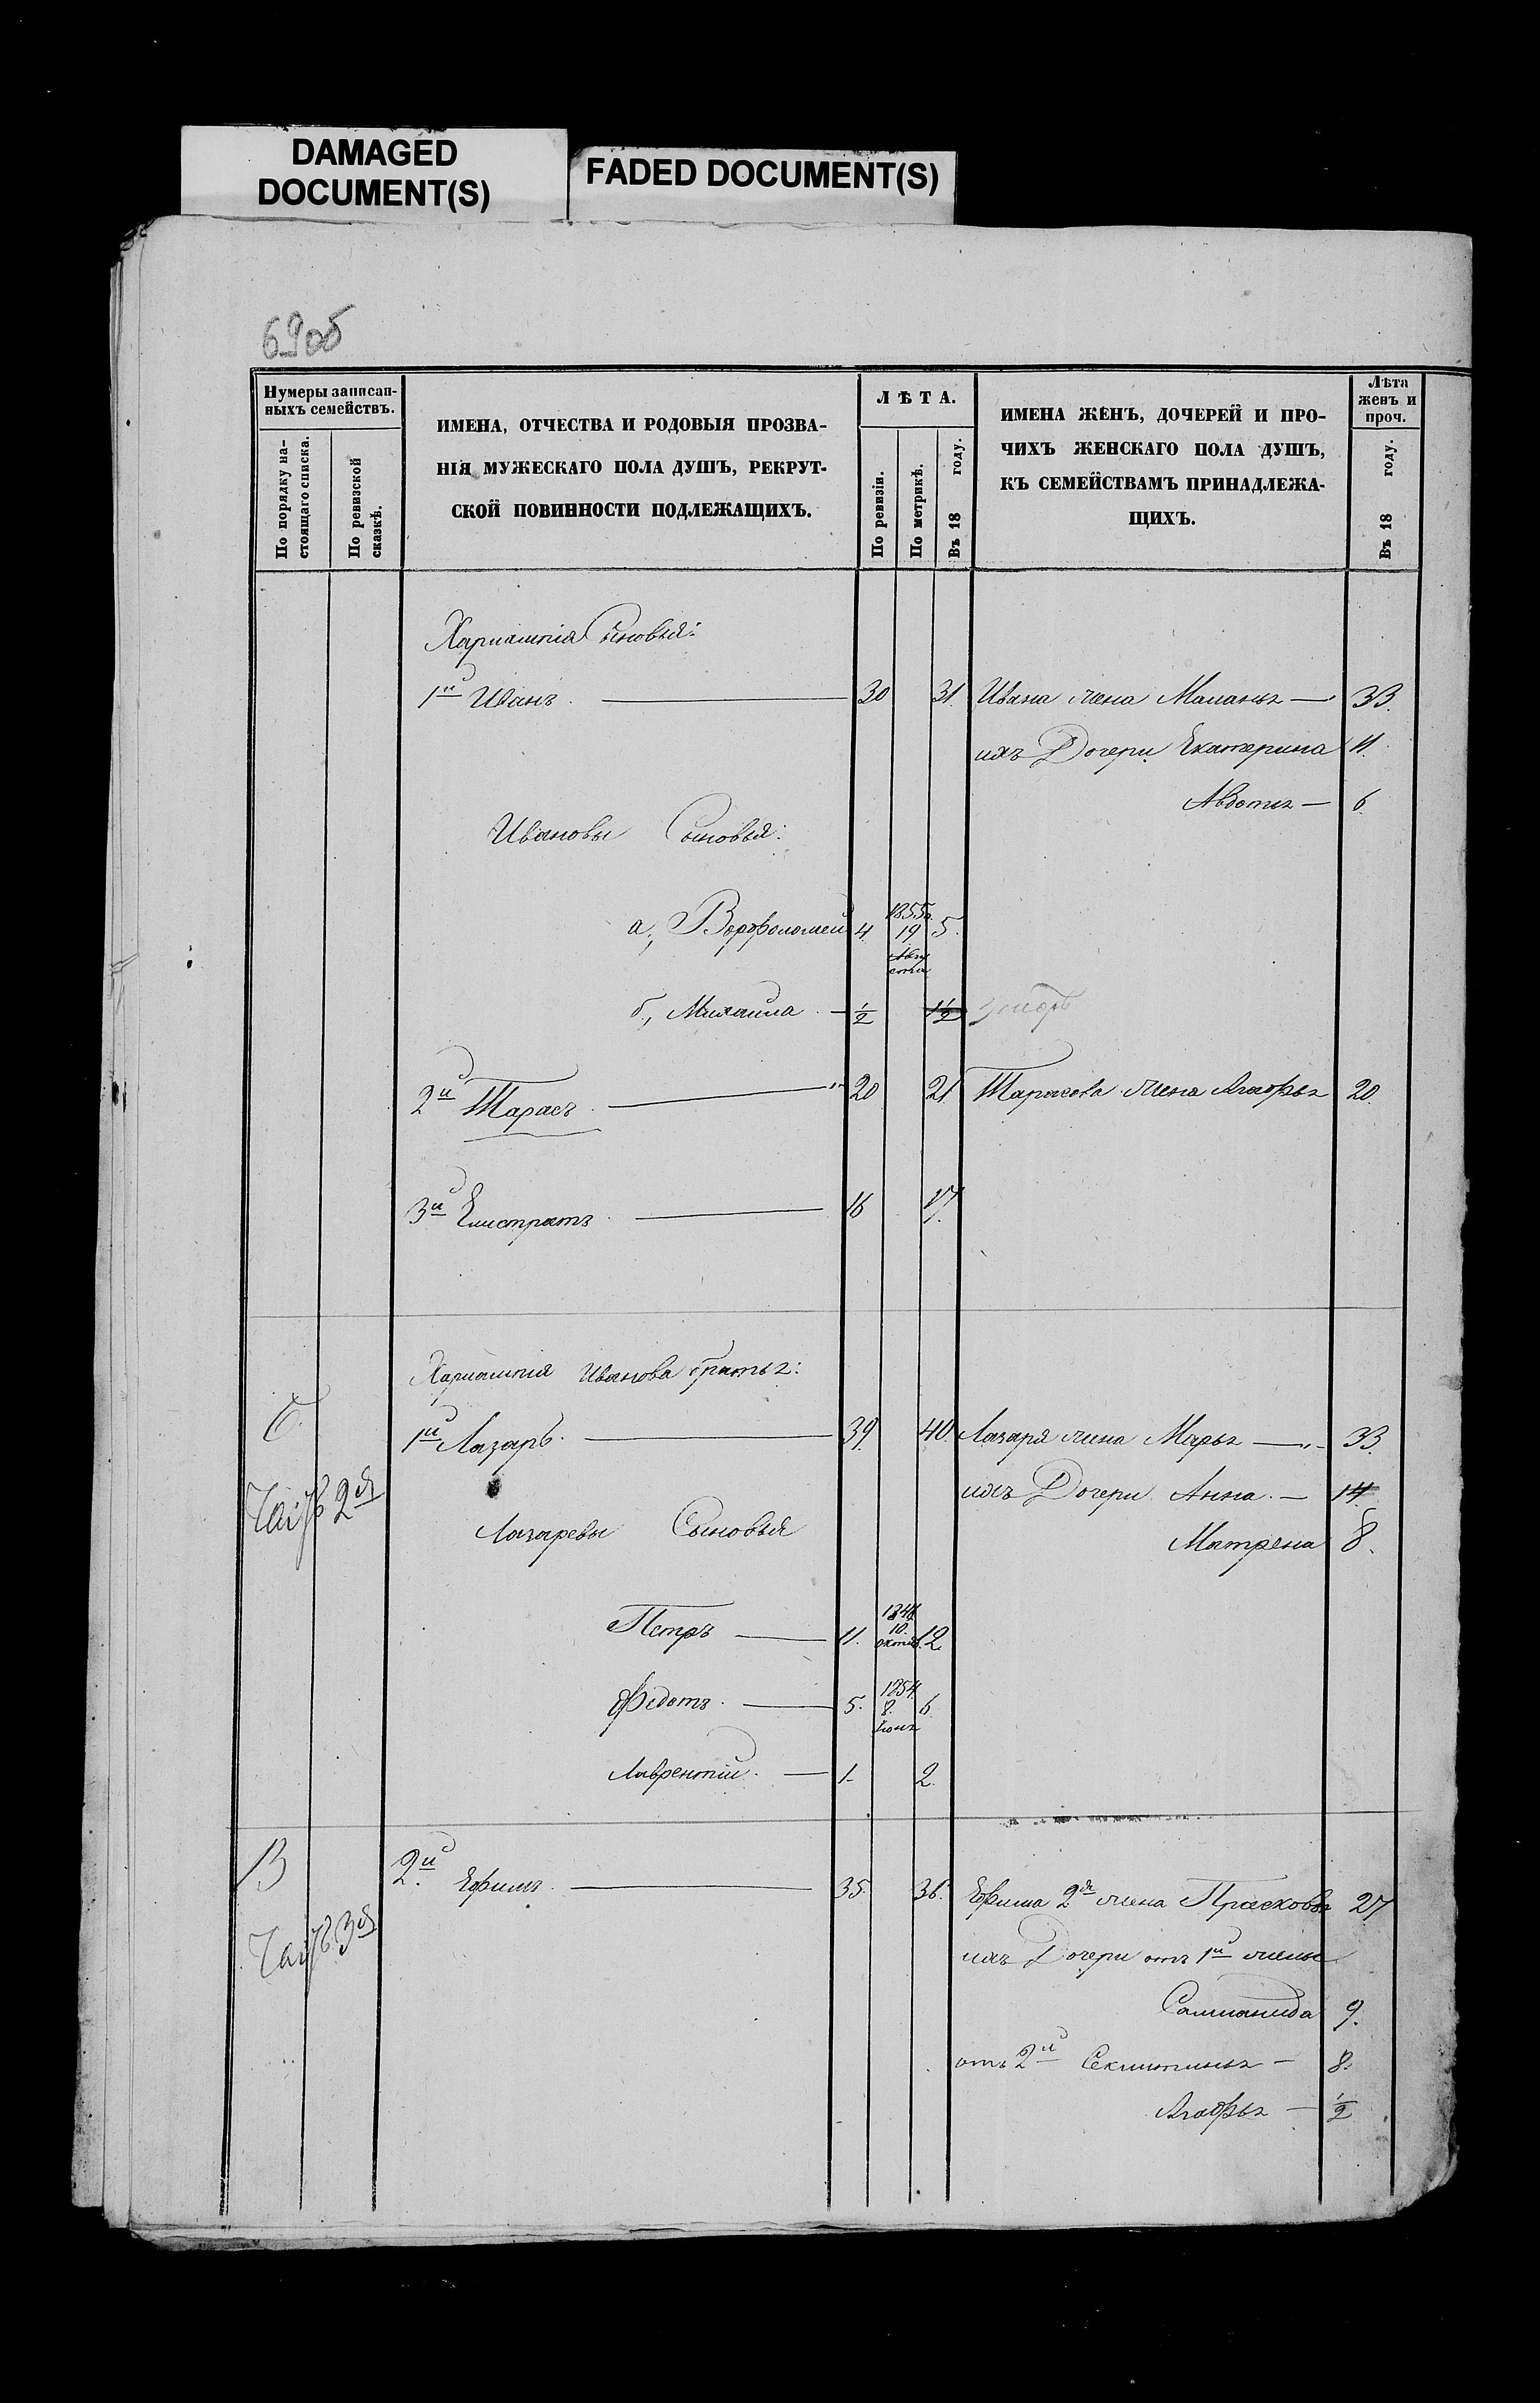 DAMAGED
DOCUMENT(S)
FADED DOCUMENT(S)
69об
Нумеры записан-
ныхъ семействъ.
По порядку на-
стоящаго списка.
По ревизской
сказкѣ.
ИМЕНА, ОТЧЕСТВА И РОДОВЫЯ ПРОЗВА-
НІЯ МУЖЕСКАГО ПОЛА ДУШЪ, РЕКРУТ-
СКОЙ ПОВИННОСТИ ПОДЛЕЖАЩИХЪ.
ЛѢТА.
По ревизіи.
По метрикѣ.
Въ 18 году.
ИМЕНА ЖЕНЪ, ДОЧЕРЕЙ И ПРО-
ЧИХЪ ЖЕНСКАГО ПОЛА ДУШЪ,
КЪ СЕМЕЙСТВАМЪ ПРИНАДЛЕЖА-
ЩИХЪ.
Лѣта
женъ и
проч.
Въ 18 году.
Харлампія Сыновья:
1й Иванъ. — 30 31. Ивана жена Маланья — 33.
ихъ Дочери Екатерина 11.
Авдотья — 6
Ивановы Сыновья:
а, Ворфоломей 4. 1855. 19 Авгу
ста 5.
б, Михаила. — 1/2 1 1/2
2й Тарасъ. — 20 21. Тарасова жена Агафья 20.
3й Елистратъ. — 16 17.
Харлампія Иванова братья:
Б.
1й Лазарь. — 39. 40. Лазаря жена Марья — 33.
Часть 2я
ихъ Дочери Анна. — 14.
Лазаревы Сыновья
Матрена 8.
Петръ — 11. 184 10. октяб. 12.
Федотъ. — 5. 1854. 8. Іюня 6.
Лаврентій. — 1. 2.
В
2й Ефимъ. — 35. 36. Ефима 2я жена Прасковья 27
Часть 3я
ихъ Дочери отъ 1й жены
Саломанида 9.
отъ 2й Секлитинья — 8.
Агафья — 1/2